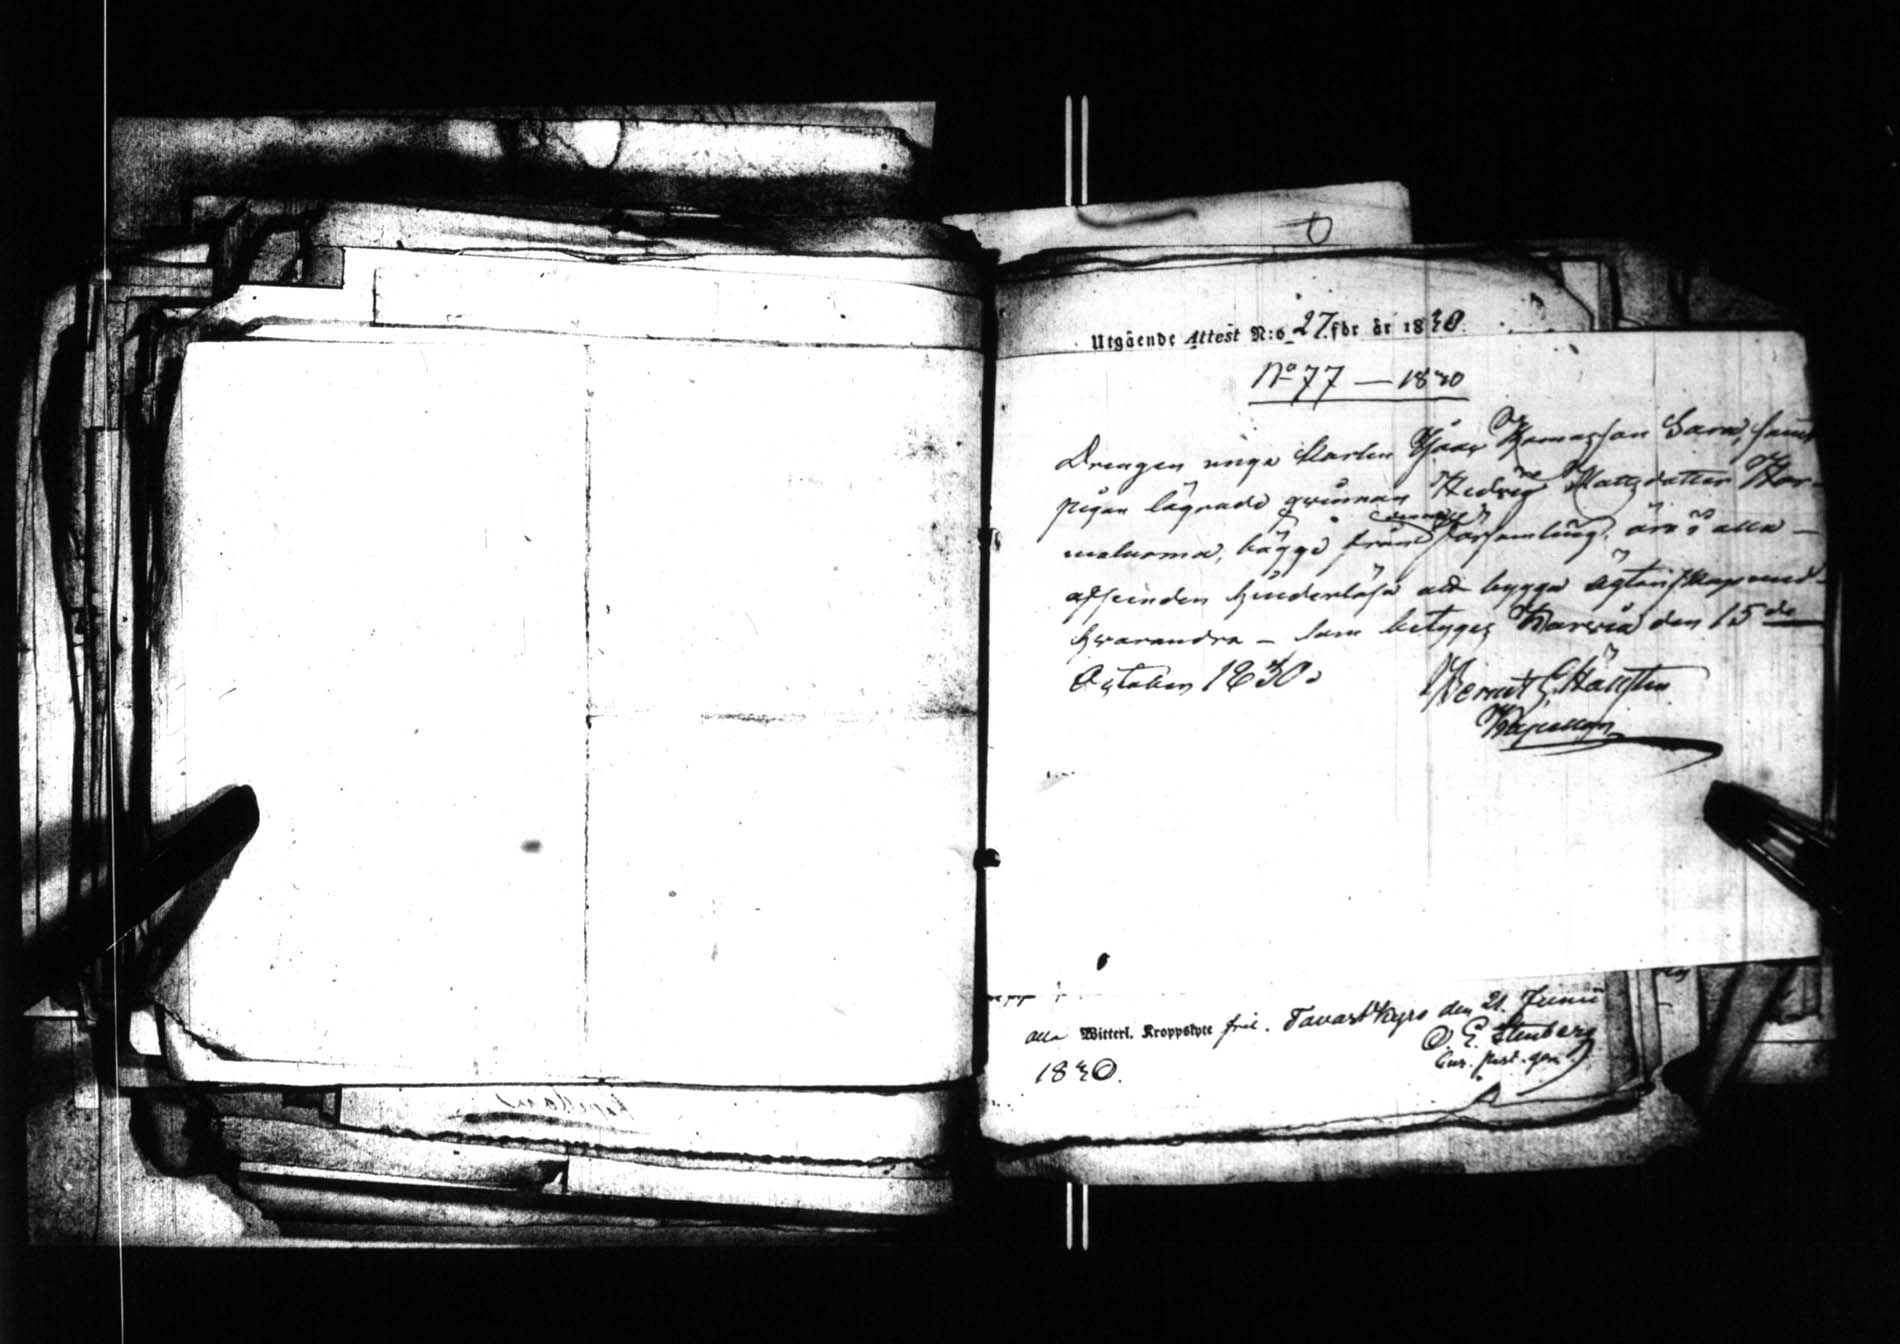 Utgående Attest N:o 27. för år 1830.
No 77 — 1830
Drengen unga Karlen Isaac Thomasson Sara, samt
pigan lägrade qvinnan Hedvig Mattsdotter Kar-
maluoma, bägge från denna Församling, äro i alla
afseenden hinderlösa att bygga ägtenskap med
hvarandra — Som betygas Karvia den 15de
October 1830.
Bernt
Kapellan
alla Witterl. Kroppslyte frie. Tavastkyro den 21. Junii
1830.
O. E. Stenberg
Kapellans